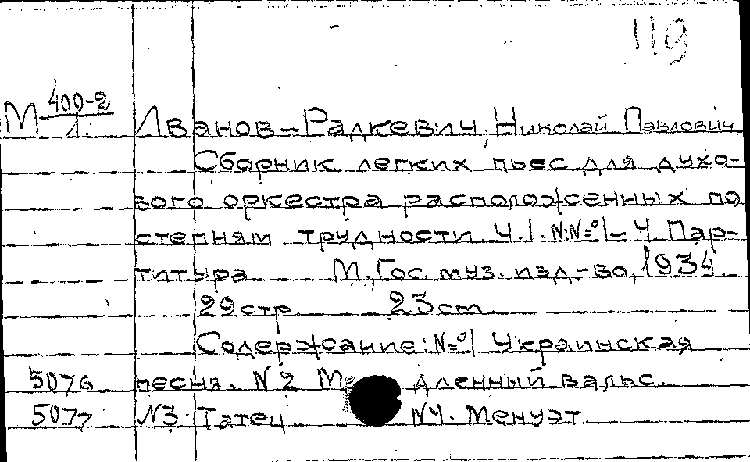 119
М 400-2/1. Иванов-Радкевич, Николай Павлович
Сборник легких пьес для духо-
вого оркестра расположенных по
степням трудности Ч.1. №№1-4 Пар-
титура М. Гос. муз. изд-во, 1934
29 стр. 23 cm
Содержание: №1 Украинская
5076 песня. №2 дленный вальс.
5077 №3 Татец №4. Менуэт